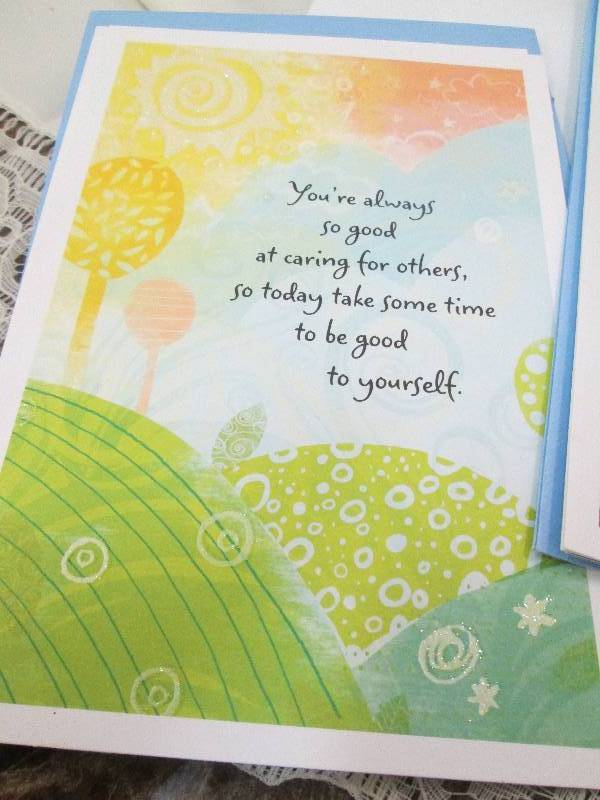 You're always
so good
at caring for others,
so today take some time
to be good
to yourself.